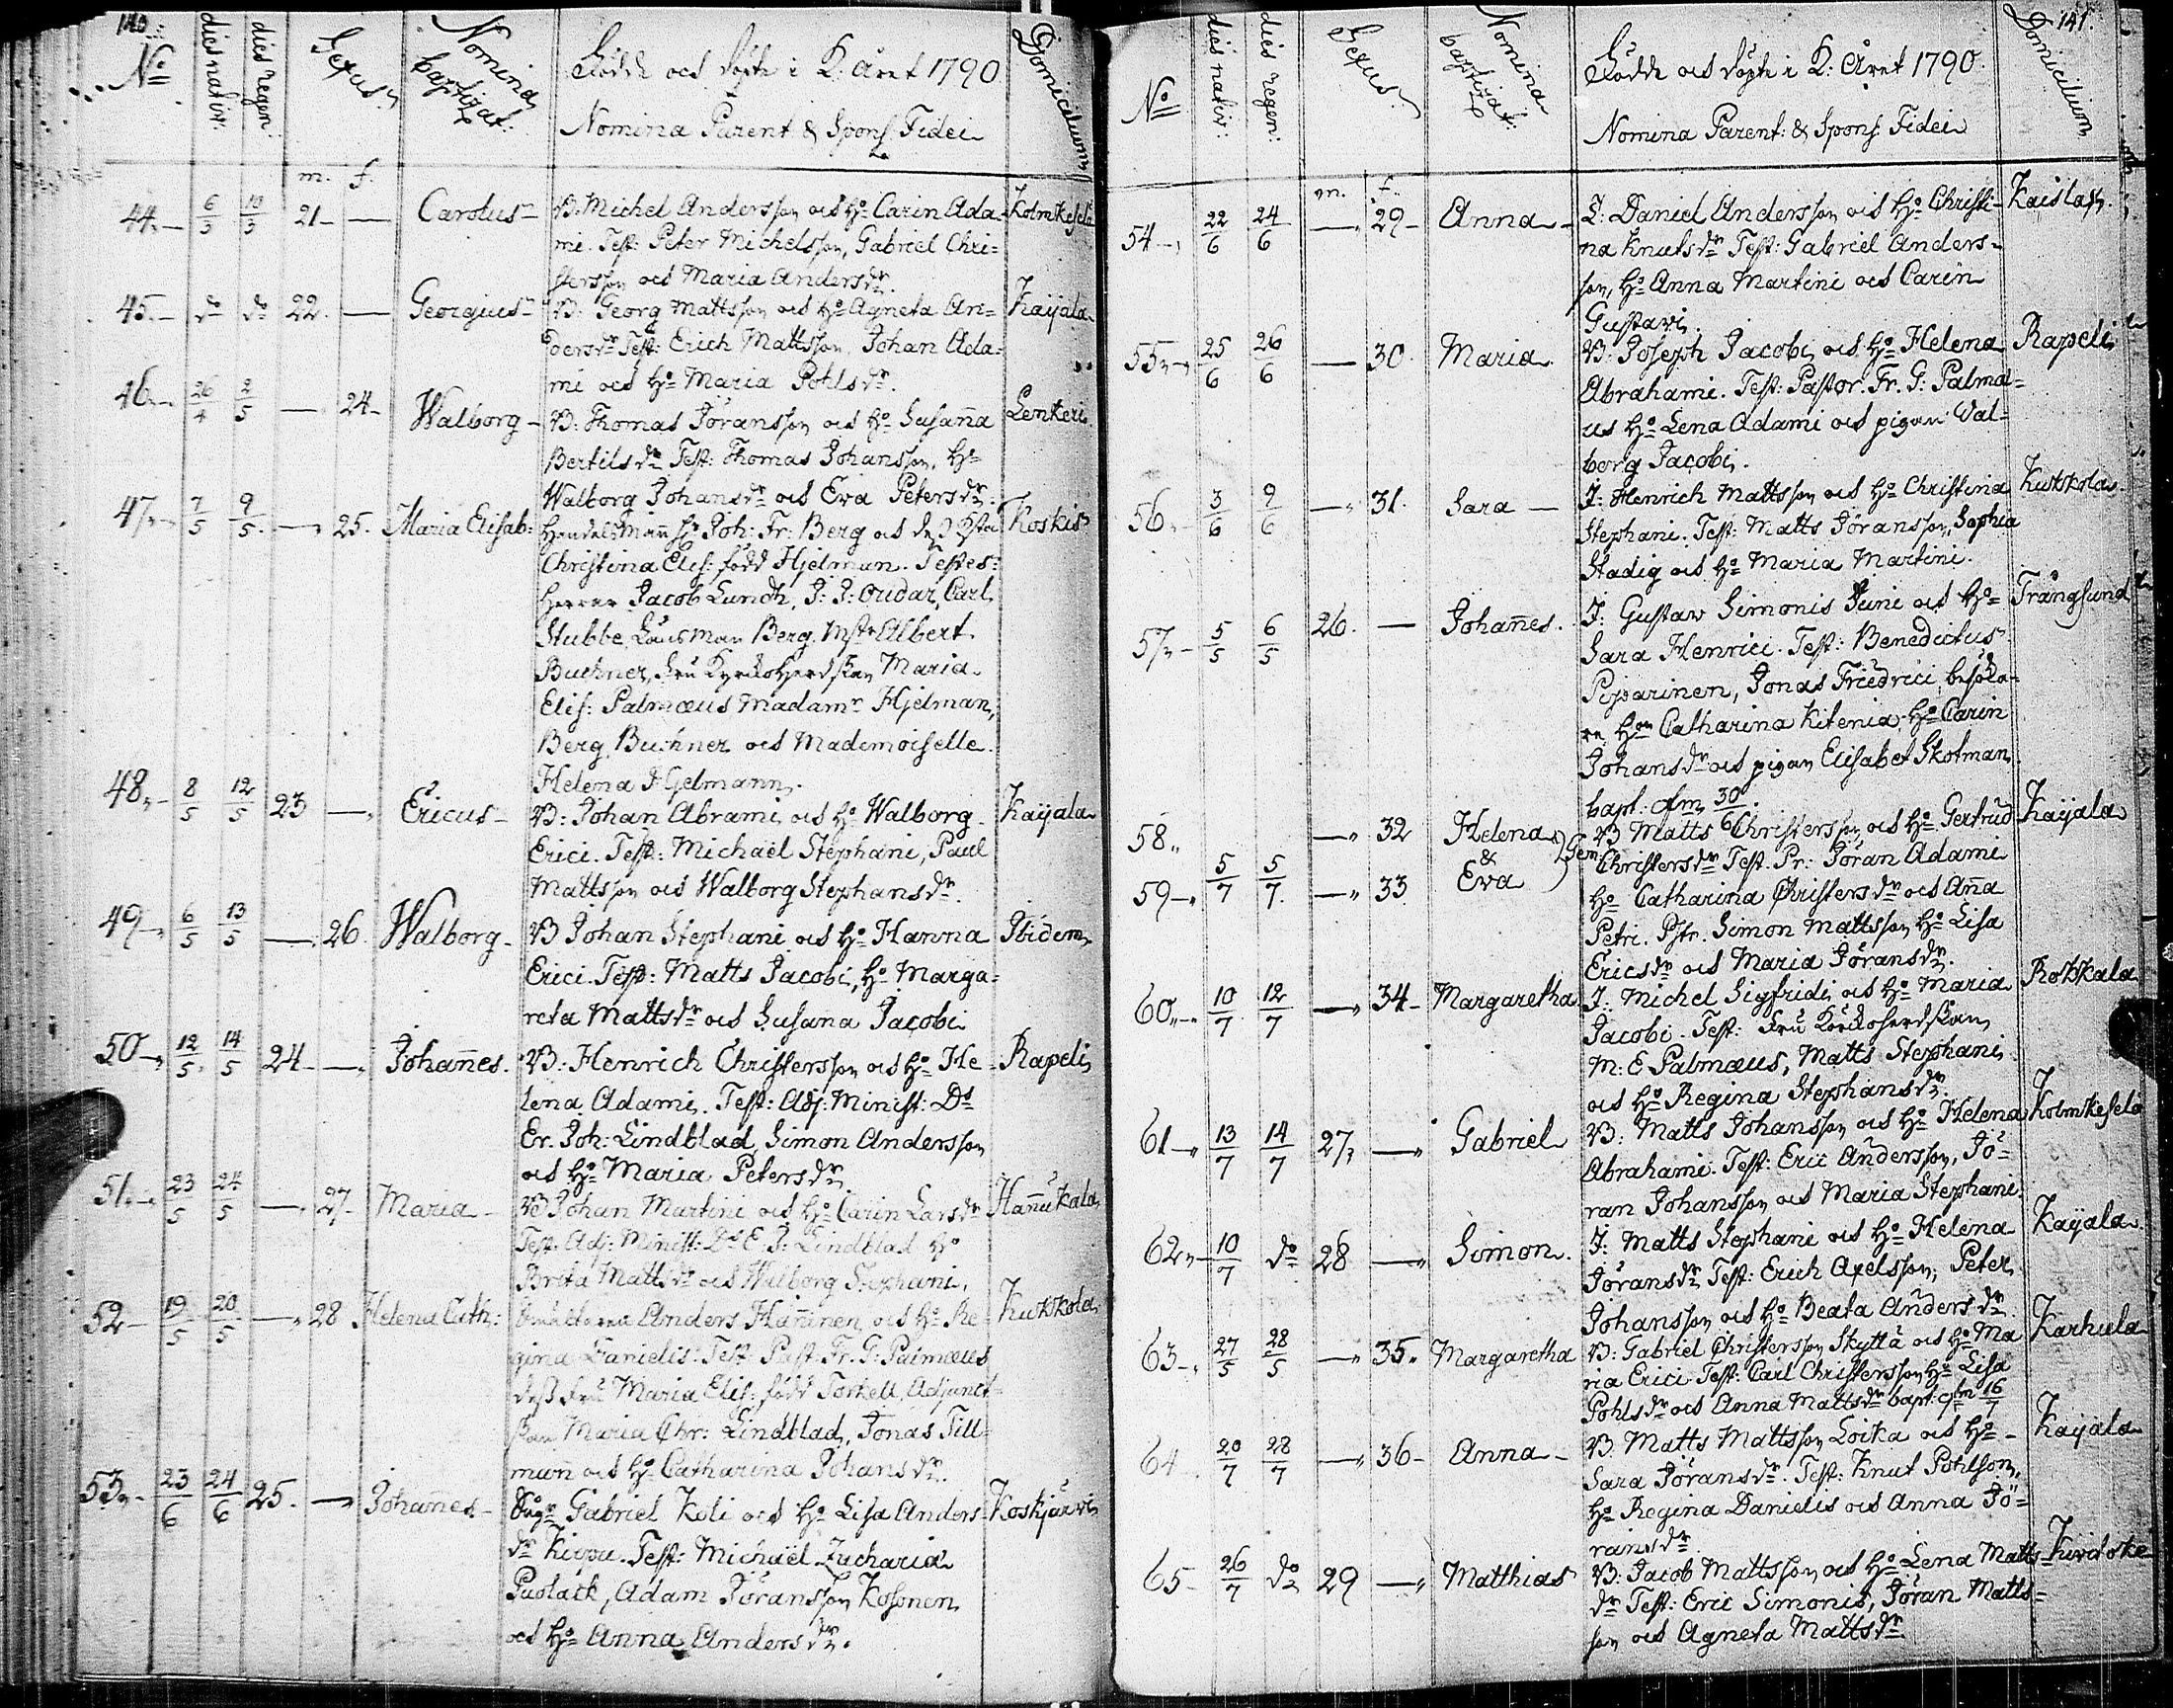 140.
No
dies nativ:
dies regen:
Sexus
Nomina baptizat:
Födde och döpte i K. Året 1790
Nomina Parent & Spons. Fidei
Domicilium
m. f.
44. 6/3 10/3 21 — Carolus B. Michel Andersson och Ho Carin Ada- Kolmikesela
mi. Test: Peter Michelsson, Gabriel Chri=
stersson och Maria Andersdr.
45. do do 22. — Georgius B. Georg Mattsson och Ho Agneta An= Kaijala
dersdr Test: Erich Mattsson, Johan Ada=
mi och Ho Maria Pohlsdr.
46. 26/4 2/5 — 24 Walborg B: Thomas Göransson och Ho Susanna Lenkeri
Bertilsdr Test: Thomas Johansson, Ho
Walborg Johansdr och Eva Petersdr.
47. 7/5 9/5 — 25. Maria Elisab: Handelsman Hr Joh: Fr: Berg och Koskis
Christina Elis: född Hjelman. Testes:
Herrar Jacob Lundh, J: J: Oudar, Carl
Stubbe, Länsman Berg, Mstr Albert
Buchner, Fru Kyrckoherdskan Maria
Elis: Palmæus Madamr Hjelman,
Berg, Buchner och Mademoiselle
Helena Gelmann.
48. 8/5 12/5 23 — Ericus B: Johan Abrami och Ho Walborg Kaijala
Erici. Test: Michaël Stephani, Paul
Mattsson och Walborg Stephansdr.
49. 6/5 13/5 — 26. Walborg B Johan Stephani och Ho Hanna Ibidem
Erici. Test: Matts Jacobi, Ho Marga=
reta Mattsdr och Susana Jacobi
50. 12/5 14/5 24 — Johannes. B: Henrich Christersson och Ho He= Rapeli
lena Adami. Test: Adj: Minist: Ds
Er. Joh: Lindblad, Simon Andersson
och Ho Maria Petersdr
51. 23/5 24/5 — 27 Maria B Johan Martini och Ho Carin Larsdr Hannukala
Test: Adj: Minist: Ds E. J: Lindblad Ho
Brita Mattsdr och Walborg Stephani.
52 19/5 20/5 — 28 Helena Cath: Anders Hänninen och Ho Re= Kukkola
gina Danielis. Test: Past. Fr. G: Palmæus
dess Fru Maria Elis: född Torkell, Adjunct=
skan Maria Chr: Lindblad, Jonas Till=
mann och Ho Catharina Johansdr.
53. 23/6 24/6 25. — Johannes Gabriel Koli och Ho Lisa Anders= Koskijärvi
dr Kippu. Test: Michaël Zachariæ
Puolack, Adam Göransson Kosonen
och Ho Anna Andersdr.
141.
No
dies nativ:
dies regen:
Sexus
Nomina baptizat:
Födde och döpte i K: Året 1790.
Nomina Parent: & Spons. Fidei
Domicilium
m. f.
54 22/6 24/6 — 29 Anna I: Daniel Andersson och Ho Christi= Kaislax.
na Knutsdr Test: Gabriel Anders=
son, Ho Anna Martini och Carin
Gustavi.
55 25/6 26/6 — 30. Maria B: Joseph Jacobi och Ho Helena Rapeli
Abrahami. Test: Pastor. Fr. G: Palmæ=
us Ho Lena Adami och pigan Wal=
borg Jacobi.
56. 3/6 9/6 — 31. Sara I: Henrich Mattsson och Ho Christina Kukkola
Stephani. Test: Matts Göransson, Sophia
Stadig och Ho Maria Martini.
57. 5/5 6/5 26. — Johannes. I: Gustaw Simonis Juni och Ho Trångsund
Sara Henrici. Test: Benedictus
Pipparinen, Jonas Friedrici, besöka=
re, Hon Catharina Kitenia, Ho Carin
Johansdr och pigan Elisabet Skotman
bapt. 30/6.
58. — 32 Helena & Gem. B Matts Christersson och Ho Gertrud Kaijala
59. 5/7 5/7. — 33. Eva Christersdr Test. Pr: Göran Adami
Ho Catharina Christersdr och Anna
Petri. Pstr. Simon Mattsson Ho Lisa
Ericsdr och Maria Göransdr.
60. 10/7 12/7 — 34 Margaretha I: Michel Sigfridi och Ho Maria Rokkala
Jacobi. Test: Fru Kyrckoherdskan
M: E Palmæus, Matts Stephani
och Ho Regina Stephansdr.
61. 13/7 14/7 27. — Gabriel B: Matts Johansson och Ho Helena Kolmikesela
Abrahami. Test: Eric Andersson, Gö=
ran Johansson och Maria Stephani.
62. 10/7 do 28 — Simon. I: Matts Stephani och Ho Helena Kaijala.
Göransdr Test: Erich Axelsson, Peter
Johansson och Ho Beata Andersdr
63. 27/5 28/5 — 35. Margaretha B: Gabriel Christersson Skyttä och Ho Ma Karhula
ria Erici Test: Carl Christersson, Ho Lisa
Pohlsdr och Anna Mattsdr bapt. 16/7
64 20/7 28/7 — 36 Anna B Matts Mattsson Loika och Ho Kaijala
Sara Göransdr. Test: Knut Pohlson,
Ho Regina Danielis och Anna Gö=
ransdr
65 26/7 do 29 — Matthias B: Jacob Mattsson och Ho Lena Matts=
dr Test: Eric Simonis, Göran Matts=
son och Agneta Mattsdr